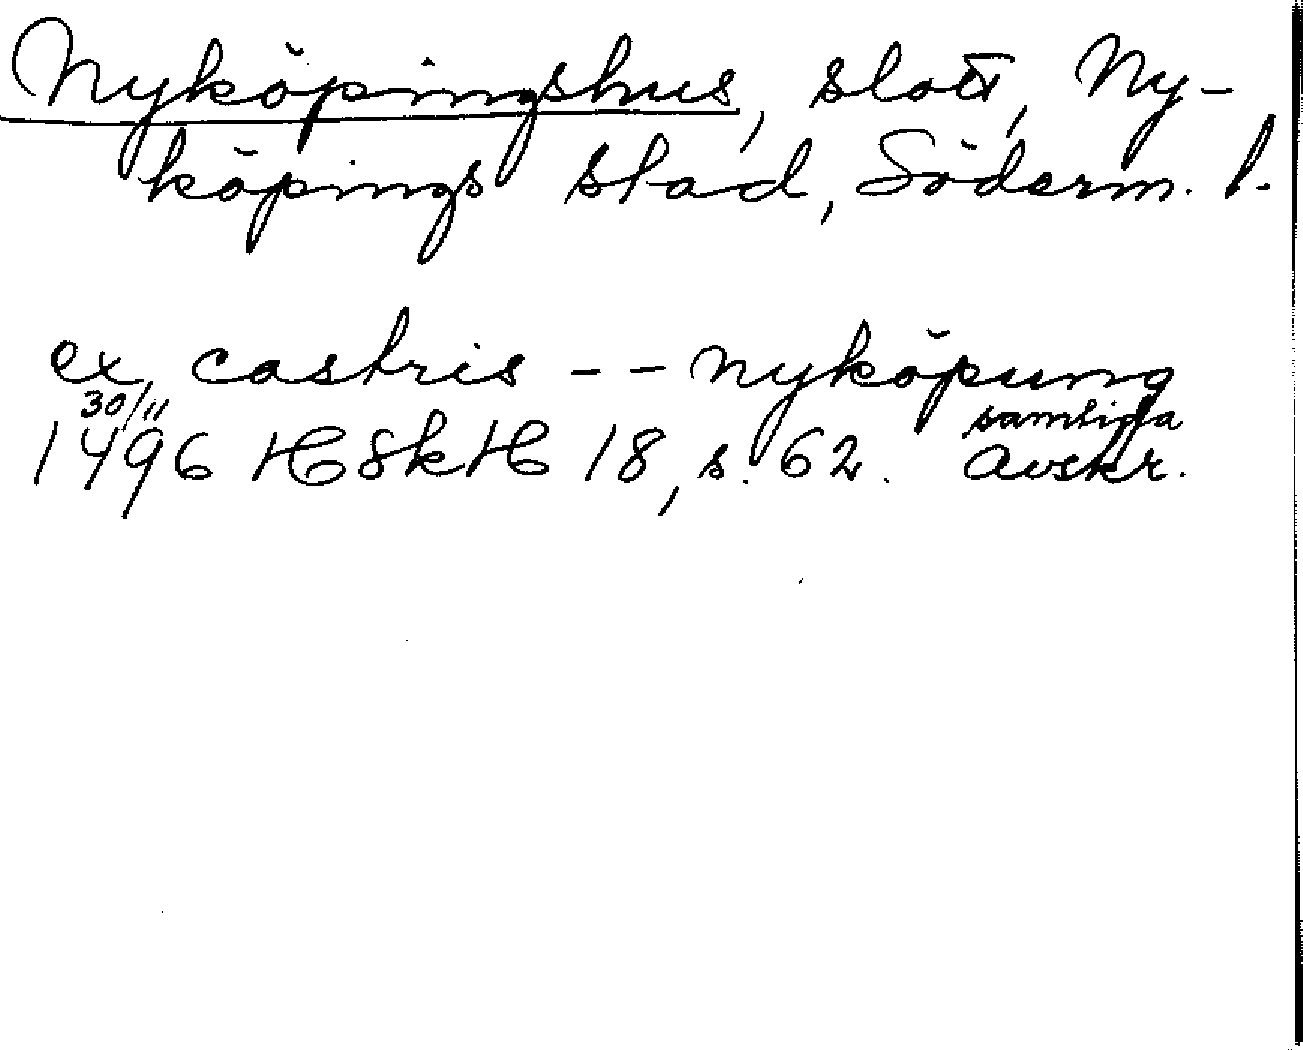 Nyköpingshus, slott, Ny-
köpings stad, Söderm. l.
ex castris -- nyköpung
30/11 samtida
1496 HSkH 18, s. 62. Avskr.